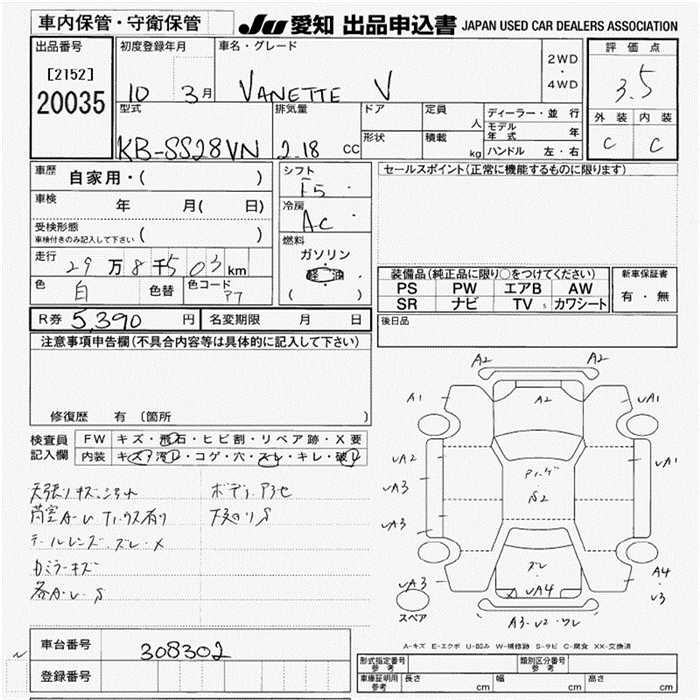 車内保管・守衛保管
JU 愛知 出品申込書 JAPAN USED CAR DEALERS ASSOCIATION
出品番号
[2152]
20035
初度登録年月
10 3月
車名・グレード
VANETTE V
2WD
・
4WD
評価点
3.5
外装 内装
C C
型式
KB-SS28VN
排気量
2.18 CC
ドア
形状
定員
人
積載
kg
ディーラー・並行
モデル年式 年
ハンドル 左・右
車歴
自家用・( )
車検
年 月( 日)
受検形態
車検付きのみ記入して下さい ( )
走行
29万8千503km
色
白
色替
色コード
シフト
F5
冷房
AC
燃料
ガソリン
軽油
( )
セールスポイント(正常に機能するものに限ります)
装備品(純正品に限り○をつけてください)
PS PW エアB AW
SR ナビ TV カワシート
新車保証書
有・無
R券 5,390円
名変期限 月 日
後日品
注意事項申告欄(不具合内容等は具体的に記入して下さい)
修復歴 有 〔箇所 〕
検査員記入欄
FW キズ・飛石・ヒビ割・リペア跡・X要
内装 キズ・汚レ・コゲ・穴・スレ・キレ・破レ
テールレンズ・ズレ・X
A2 A2
A1 A2 uA1
uA2 uA1
uA3
uA3
uA3 uA4 A4
スペア
A-キズ E-エクボ U-凹み W-補修跡 S-サビ C-腐食 XX-交換済
車台番号
308302
登録番号
形式指定番号 参考
類別区分番号 参考
車庫証明用 参考
長さ cm
幅 cm
高さ cm